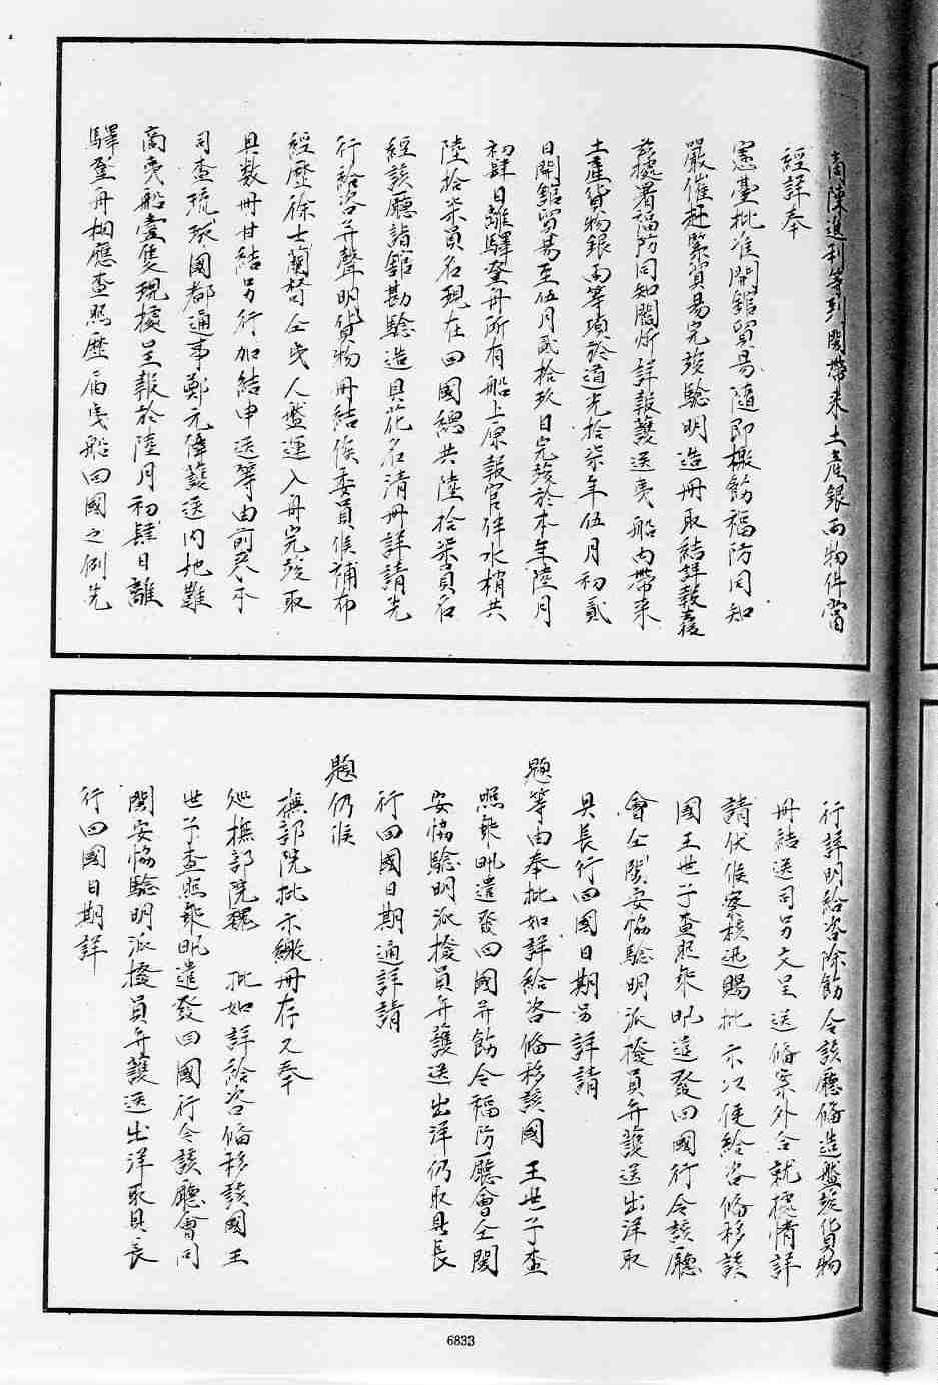 商陳進利等到閩帶來土產銀兩物件當
經詳奉
憲臺批准開館貿易隨即檄飭福防同知
嚴催赶緊貿易完竣驗明造冊取結詳報去後
茲據署福防同知閻炘詳報護送夷船內帶來
土產貨物銀兩等項於道光拾柒年伍月初貳
日開館貿易至伍月貳拾玖日完竣於本年陸月
初肆日離驛登舟所有船上原報官伴水梢共
陸拾柒員名現在回國總共陸拾柒員名
經該廳詣館勘驗造具花名清冊詳請先
行給咨并聲明貨物冊結俟委員候補布
經歷徐士蘭督仝夷人盤運入舟完竣取
具數冊甘結另行加結申送等由前來本
司查琉球國都通事鄭元偉護送內地難
商夷船壹隻現據呈報於陸月初肆日離
驛登舟相應查照歷屆夷船回國之例先
行詳明給咨除飭令該廳俻造盤驗貨物
冊結送司另文呈送俻案外合就據情詳
請伏候察核迅賜批示以便給咨俻移該
國王世子查照彙叱遣發回國行令該廳
會仝閩安協驗明派撥員弁護送出洋取
具長行回國日期另詳請
題等由奉批如詳給咨俻移該國王世子查
照彙叱遣發回國并飭令福防廳會仝閩
安協驗明派撥員弁護送出洋仍取具長
行回國日期通詳請
題仍候
撫部院批示繳冊存又奉
巡撫部院魏 批如詳給咨俻移該國王
世子查照彙叱遣發回國行令該廳會同
閩安協驗明派撥員弁護送出洋取具長
行回國日期詳
6833